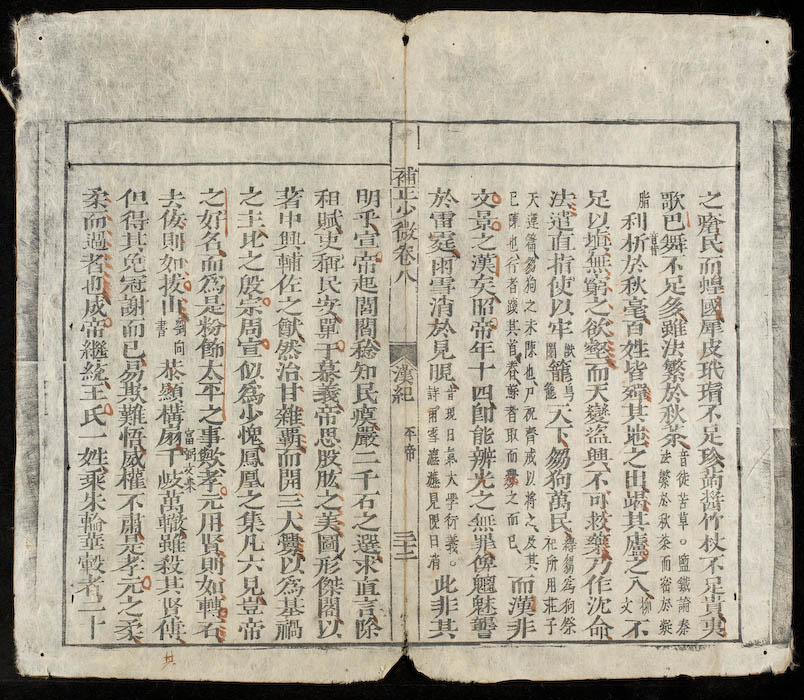 之瘠民而蝗國犀皮玳瑁不足珍蒟醬竹杖不足貴夷
歌巴舞不足多雖法繁於秋荼音徒苦草。鹽鐵論秦法繁於秋荼而密於凝
脂利析於秋毫百姓皆殫其地之出竭其廬之入柳文不
足以塡無窮之欲壑而天變盜興不可救藥乃作沈命
法遣直指使以牢獸圈籠鳥籠天下芻狗萬民結芻爲狗祭祀所用莊子
天運篇芻狗之未陳也尸祝齊戒以將之及其已陳也行者踐其首脊蘇者取而爨之而已而漢非
文景之漢矣昭帝年十四卽能辨光之無罪俾魍魅讋
於雷霆雨雪消於見晛音現日氣大學衍義。詩雨雪瀌瀌見晛曰消此非其
明乎宣帝起閭閻稔知民瘼嚴二千石之選求直言除
和賦吏稱民安單于慕義帝思股肱之美圖形傑閣以
著中興輔佐之猷然治甘雜覇而開三大釁以爲基禍
之主比之殷宗周宣似爲少愧鳳凰之集凡六見豈帝
之好名而爲是粉飾太平之事歟孝元用賢則如轉石
去佞則如拔山劉向書恭顯構扇千岐萬轍富弼攻朱雖殺其賢傅
但得其免冠謝而已易欺難悟威權不肅是孝元之柔
柔而過者也成帝繼統王氏一姓乘朱輪華轂者二十
補正少微卷八
漢紀
平帝
三十二